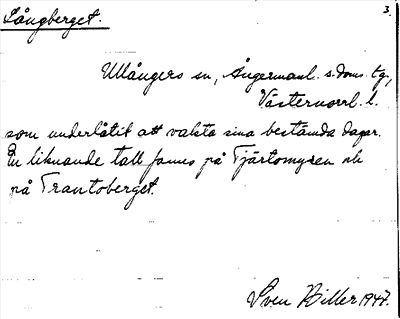 3.
Långberget.
Ullångers sn, Ångermanl. s. doms. tg,
Västernorrl. l.
som underlåtit att vakta sina bestämda dagar.
En liknande tall fanns på Tjärtomyren och
på Trantoberget.
Sven Biller 1947.